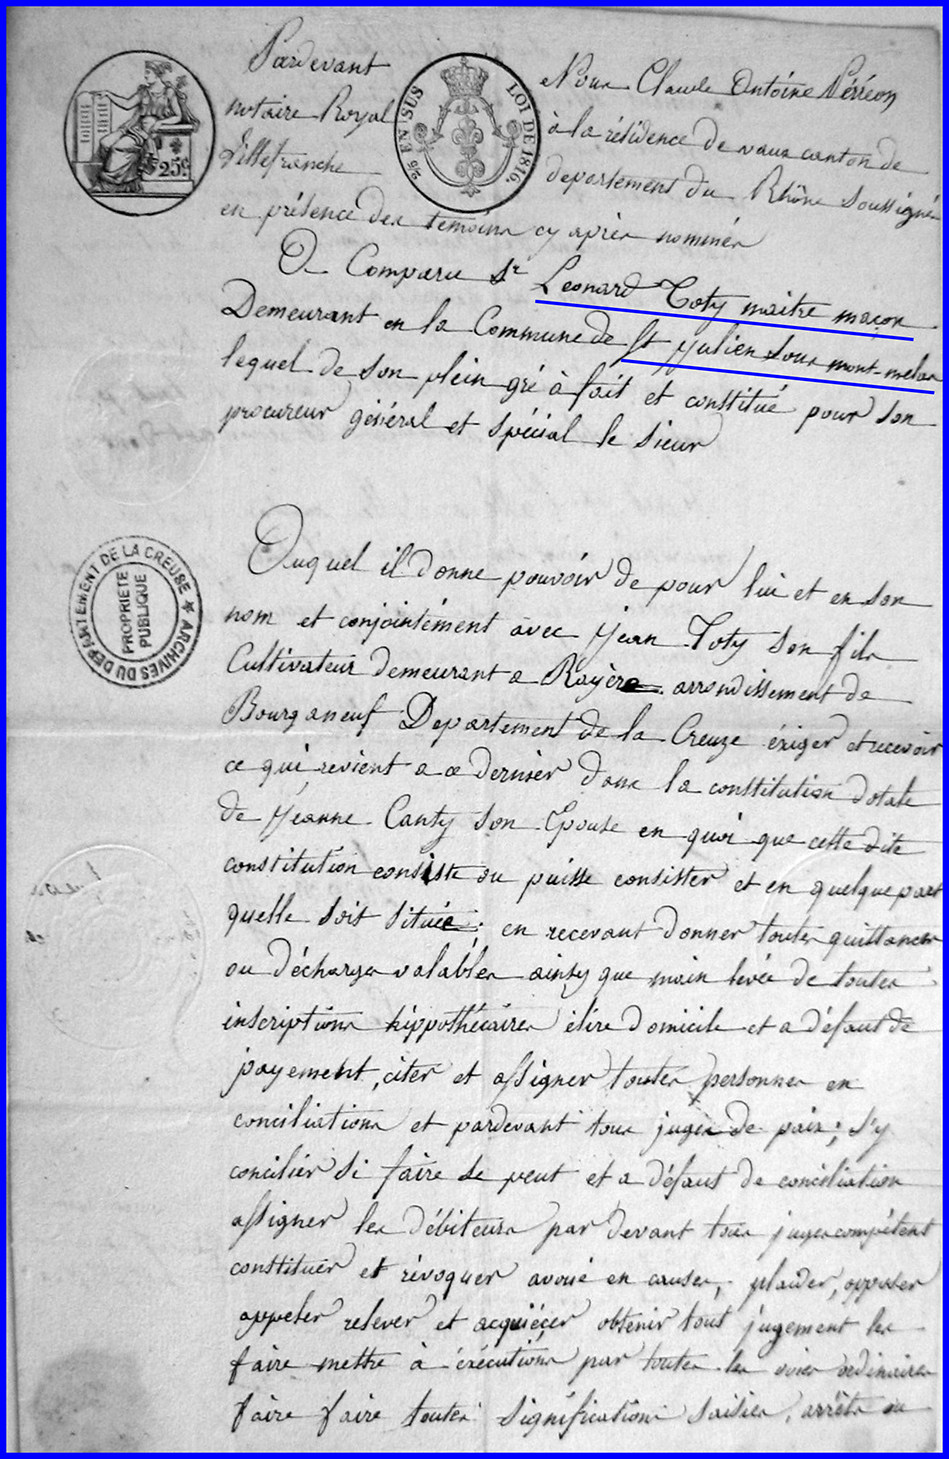 25c
2/10 EN SUS
LOI DE 1816.
Pardevant Nous Claude Antoine Pérréon
notaire Royal à la résidence de vaux canton de
Villefranche departement du Rhône Soussigné
en présence des temoins cy après nommés
A Comparu Sr Leonard Toty maitre maçon
Demeurant en la Commune de St Julien sous mont-melas
lequel de son plein gré à fait et constitué pour son
procureur général et spécial le sieur
Auquel il donne pouvoir de pour lui et en son
nom et conjointément avec Jean Toty son fils
Cultivateur demeurant a Rayère arrondissement de
Bourganeuf Departement de la Creuze éxiger et recevoir
ce qui revient a ce dernier dans la constitution dotale
de Jéanne Canty son Epouse en quoi que cette dite
constitution consiste ou puisse consister et en quelque part
quelle soit située; en recevant donner toutes quittances
ou décharges valables ainsy que main levée de toutes
inscriptions hippothécaires élire domicile et a défaut de
payement, citer et assigner toutes personnes en
conciliations et pardevant tous juges de paix; s'y
concilier si faire se peut et a défaut de conciliation
assigner les débiteurs par devant tous juges compétent
constituer et révoquer avoué en causes, plaider, opposer
appeler relever et acquiécer obtenir tout jugement les
faire mettre à éxécutions par toutes les voies ordinaires
faire faire toutes significations saisies, arrêts ou
ARCHIVES DU DEPARTEMENT DE LA CREUSE
PROPRIETE
PUBLIQUE